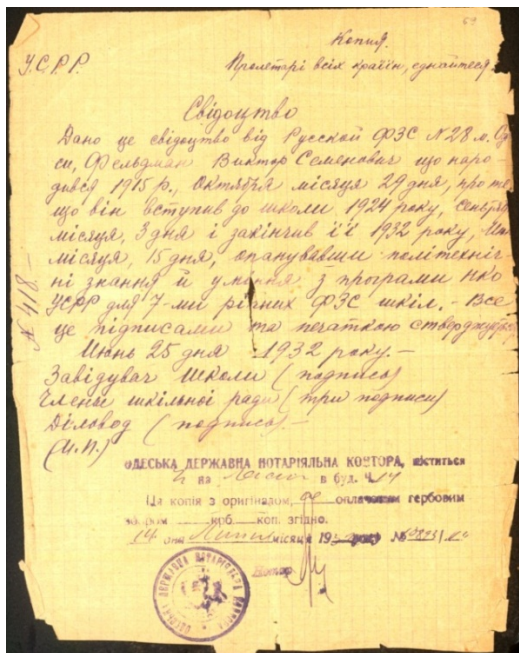 69
Копия.
У.С.Р.Р.
Пролетарі всіх країн, єднайтеся.
Свідоцтво
Дано це свідоцтво від Русской ФЗС N 28 м. Оде
си, Фельдман Виктор Семенович що наро-
дився 1915 р., Октября місяця 29 дня, про те
що він вступив до школи 1924 року, Сентяр
місяця, 3 дня і закінчив її 1932 року,
місяця, 15 дня, опанувавши політехніч-
ні знання й уміння з програми НКО
УСРР для 7-ми річних ФЗС шкіл. - Все
це підписами та печаткою стверджує
Июнь 25 дня 1932 року. -
Завідувач Школи (подпись)
Члены шкільної ради (три подписи)
Діловод (подпись) -
(М.П.)
№ 418. -
ОДЕСЬКА ДЕРЖАВНА НОТАРІЯЛЬНА КОНТОРА, міститься
на в буд. Ч. 14
Ця копія з оригіналом, оплаченим гербовим
збором крб. коп. згідно.
14 дня Липня місяця 193 року №
Нотар
ОДЕСЬКА ДЕРЖАВНА НОТАРІЯЛЬНА КОНТОРА